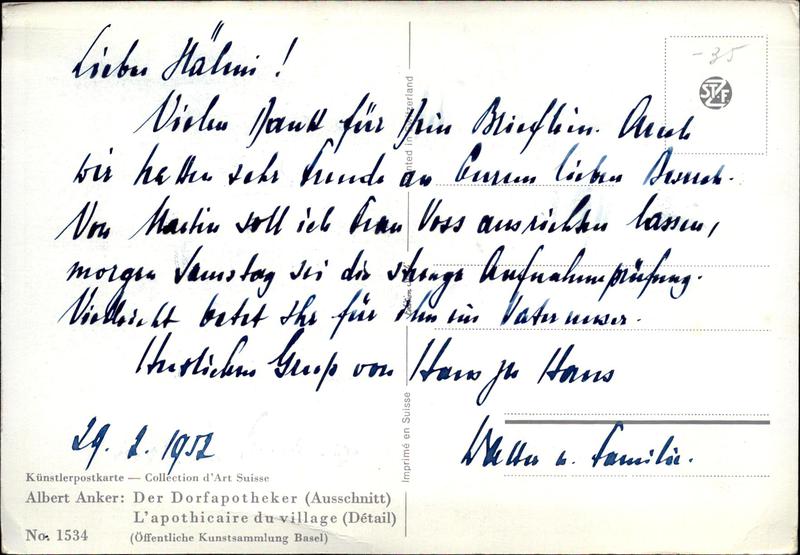 Lieber Hälmi!
-35
STZF
Vielen Dank für Dein Brieflein. Auch
wir hatten sehr Freude an Eurem lieben Besuch.
Von Martin soll ich Frau Voss ausrichten lassen,
morgen Samstag sei die strenge Aufnahmeprüfung.
Vielleicht betet Ihr für ihn ein Vaterunser.
Herzlichen Gruss von Haus zu Haus
29. 2. 1952
Walter u. Familie.
Printed in Switzerland
Imprimé en Suisse
Künstlerpostkarte — Collection d'Art Suisse
Albert Anker: Der Dorfapotheker (Ausschnitt)
L'apothicaire du village (Détail)
No. 1534 (Öffentliche Kunstsammlung Basel)